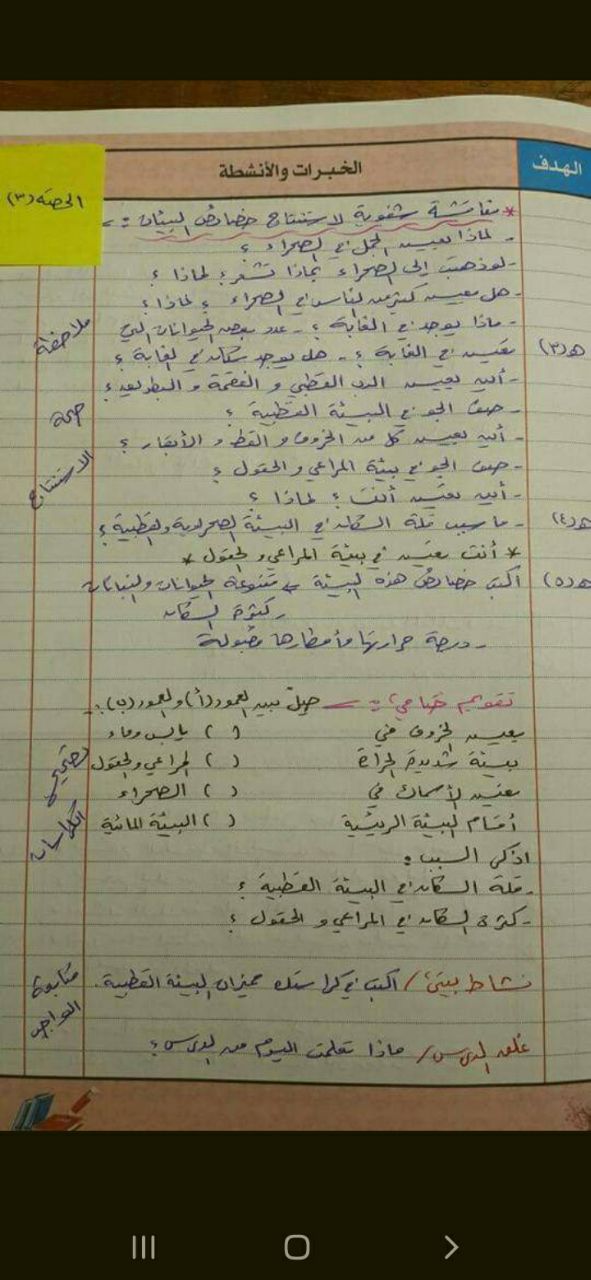 الهدف
الخبرات والأنشطة
الحصة (٣)
* مناقشة شفوية لاستنتاج خصائص البيئات :-
- لماذا يعيش الجمل في الصحراء ؟
- لو ذهبت إلى الصحراء بماذا تشعر ؟ لماذا ؟
- هل يعيش كثير من الناس في الصحراء ؟ لماذا ؟
- ماذا يوجد في الغابة ؟ - عدد بعض الحيوانات التي
هـ(٣)
تعيش في الغابة ؟ - هل يوجد سكان في الغابة ؟
ملاحظة
- أين يعيش الدب القطبي و الفقمة و البطريق ؟
- صف الجو في البيئة القطبية ؟
صحة
- أين يعيش كل من الخروف و القط و الأبقار ؟
- صف الجو في بيئة المراعي و الحقول ؟
الاستنتاج
- أين تعيش أنت ؟ لماذا ؟
هـ(٤)
- ما سبب قلة السكان في البيئة الصحراوية والقطبية ؟
* أنت تعيش في بيئة المراعي والحقول *
هـ(٥)
اكتب خصائص هذه البيئة متنوعة الحيوانات والنباتات
- كثرة السكان
- درجة حرارتها وأمطارها مقبولة
تقويم ختامي :- صِلْ بين العمود (أ) والعمود (ب) :-
يعيش الخروف في ( ) يابس وماء
بيئة شديدة الحرارة ( ) المراعي والحقول
تعيش الأسماك في ( ) الصحراء
أقسام البيئة الرئيسية ( ) البيئة المائية
تصحيح
الكراسات
اذكر السبب :
- قلة السكان في البيئة القطبية ؟
- كثرة السكان في المراعي و الحقول ؟
نشاط بيتي / اكتب في كراستك مميزات البيئة القطبية .
كتابة
الواجب
غلق الدرس / ماذا تعلمت اليوم من الدرس ؟